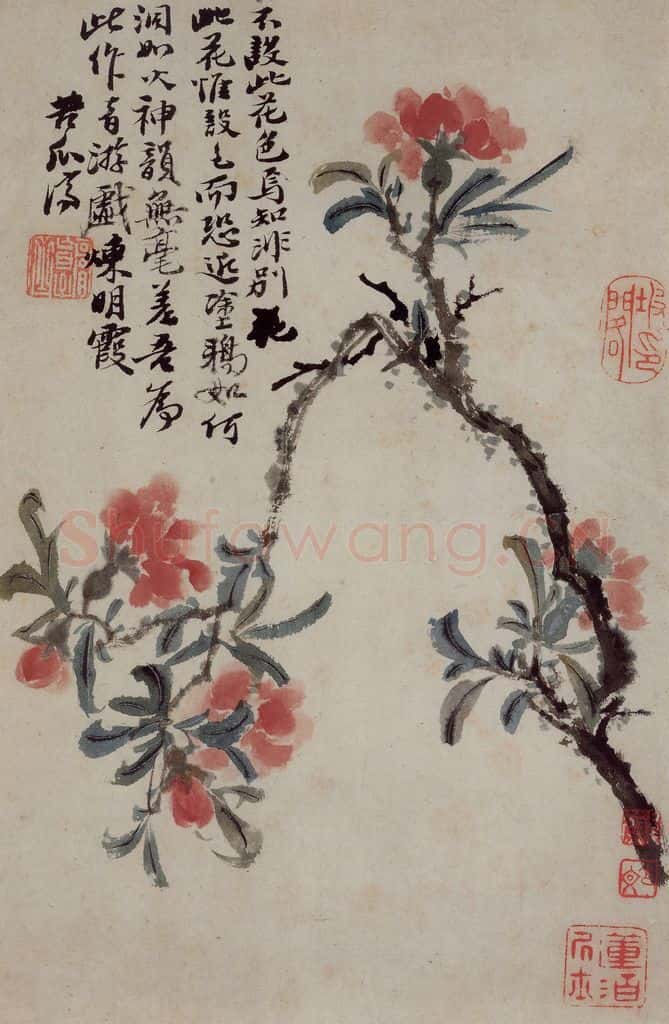 不設此花色焉知非別花
此花惟設之而恐近塗鴉如何
洞如火神韻無毫差吾為
此作游戲煉明霞
苦瓜濟
Shufawang.Cn